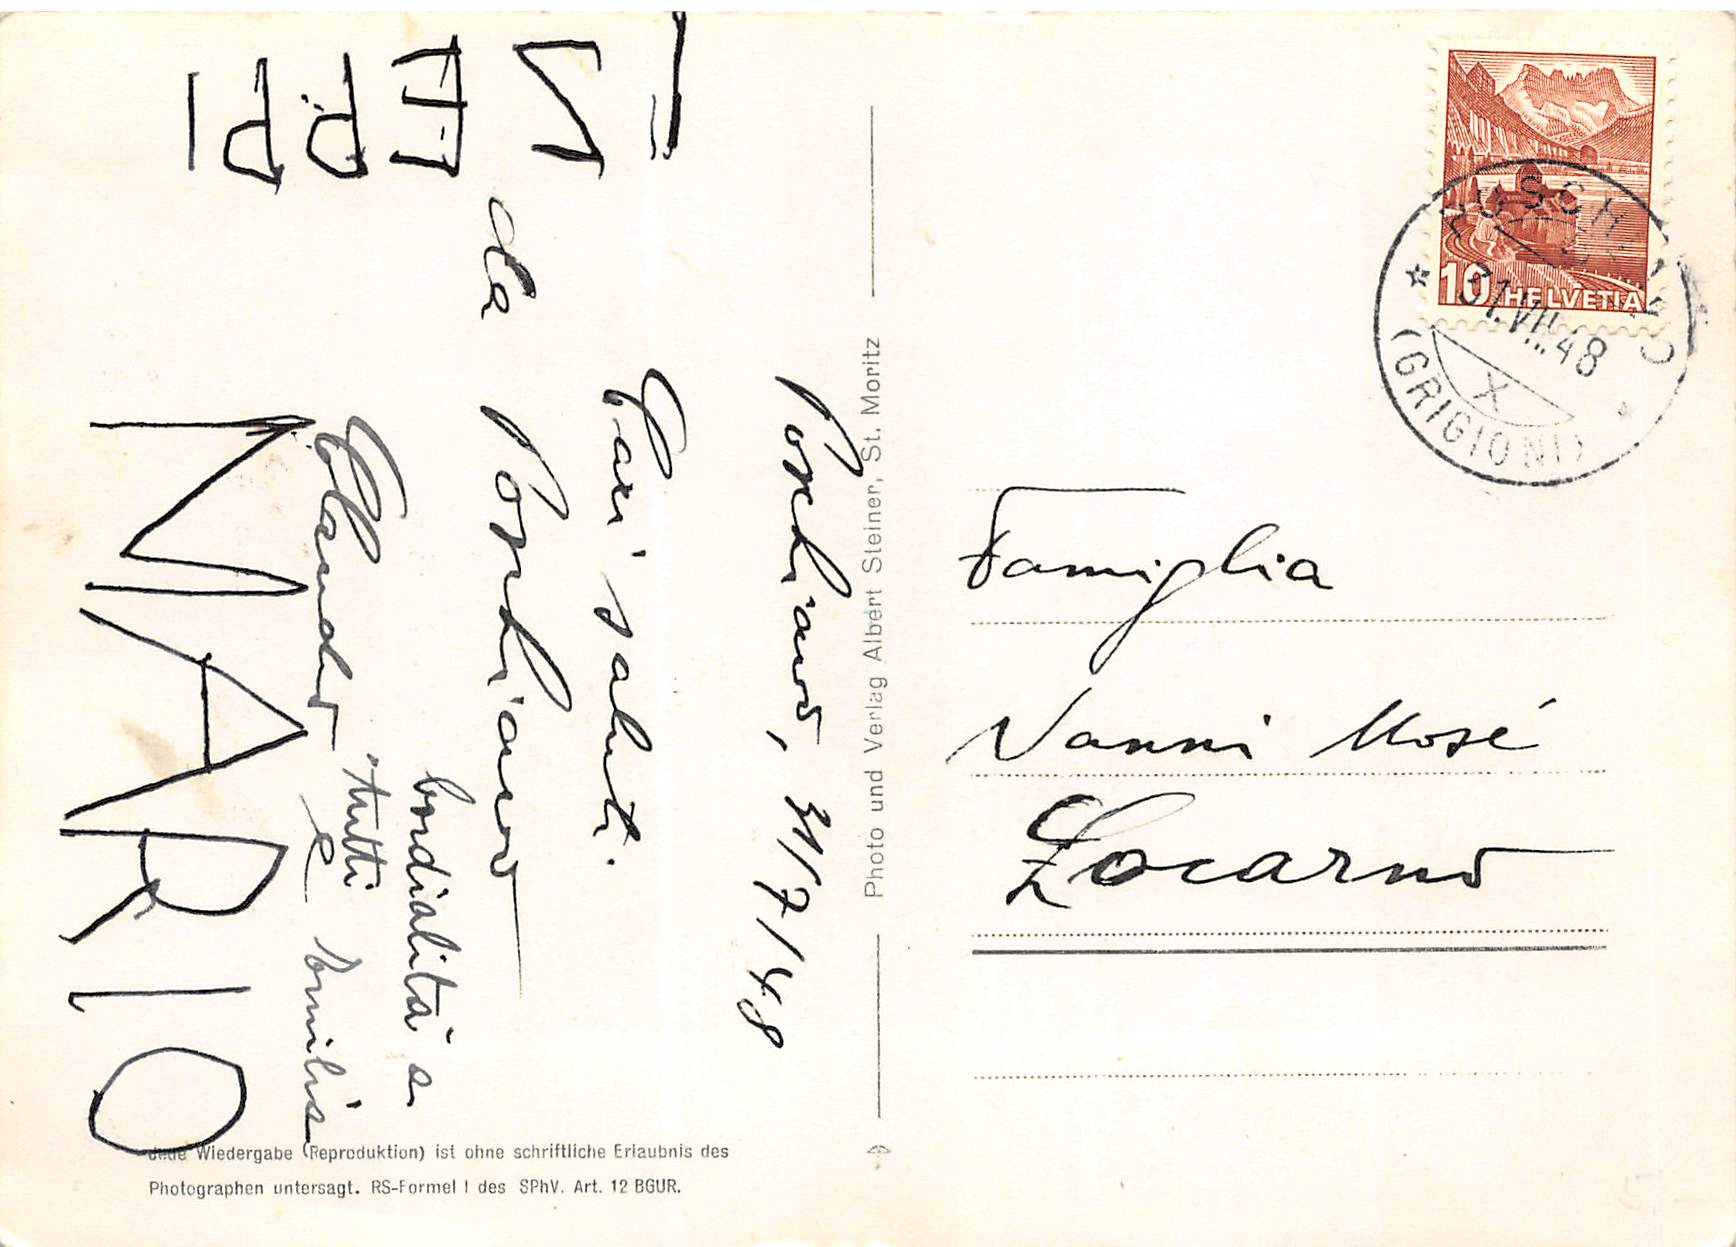 Poschiavo, 31/7/48
Cari saluti.
da Poschiavo
cordialità a
tutti Emilia
Claudio e
MARIO
Photo und Verlag Albert Steiner, St. Moritz
Jede Wiedergabe (Reproduktion) ist ohne schriftliche Erlaubnis des
Photographen untersagt. RS-Formel I des SPhV. Art. 12 BGUR.
10 HELVETIA
POSCHIAVO
31.VII.48
X
(GRIGIONI)
Famiglia
Nanni Mosé
Locarno